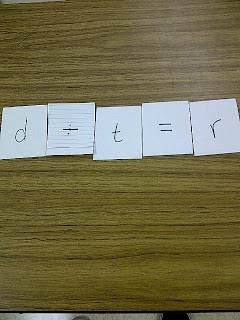 d ÷ t = r